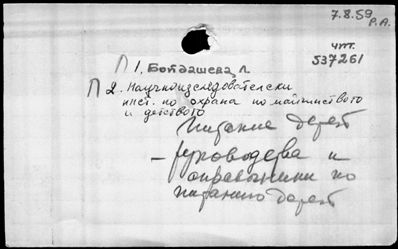 7.8.59
Р.А.
чит.
537261
П 1, Богдашева Л.
П 2. Научноизследователски
инст. по охрана по майчинството
и детството
Питание дерев
– руководства и
справочники по
питанию дерев